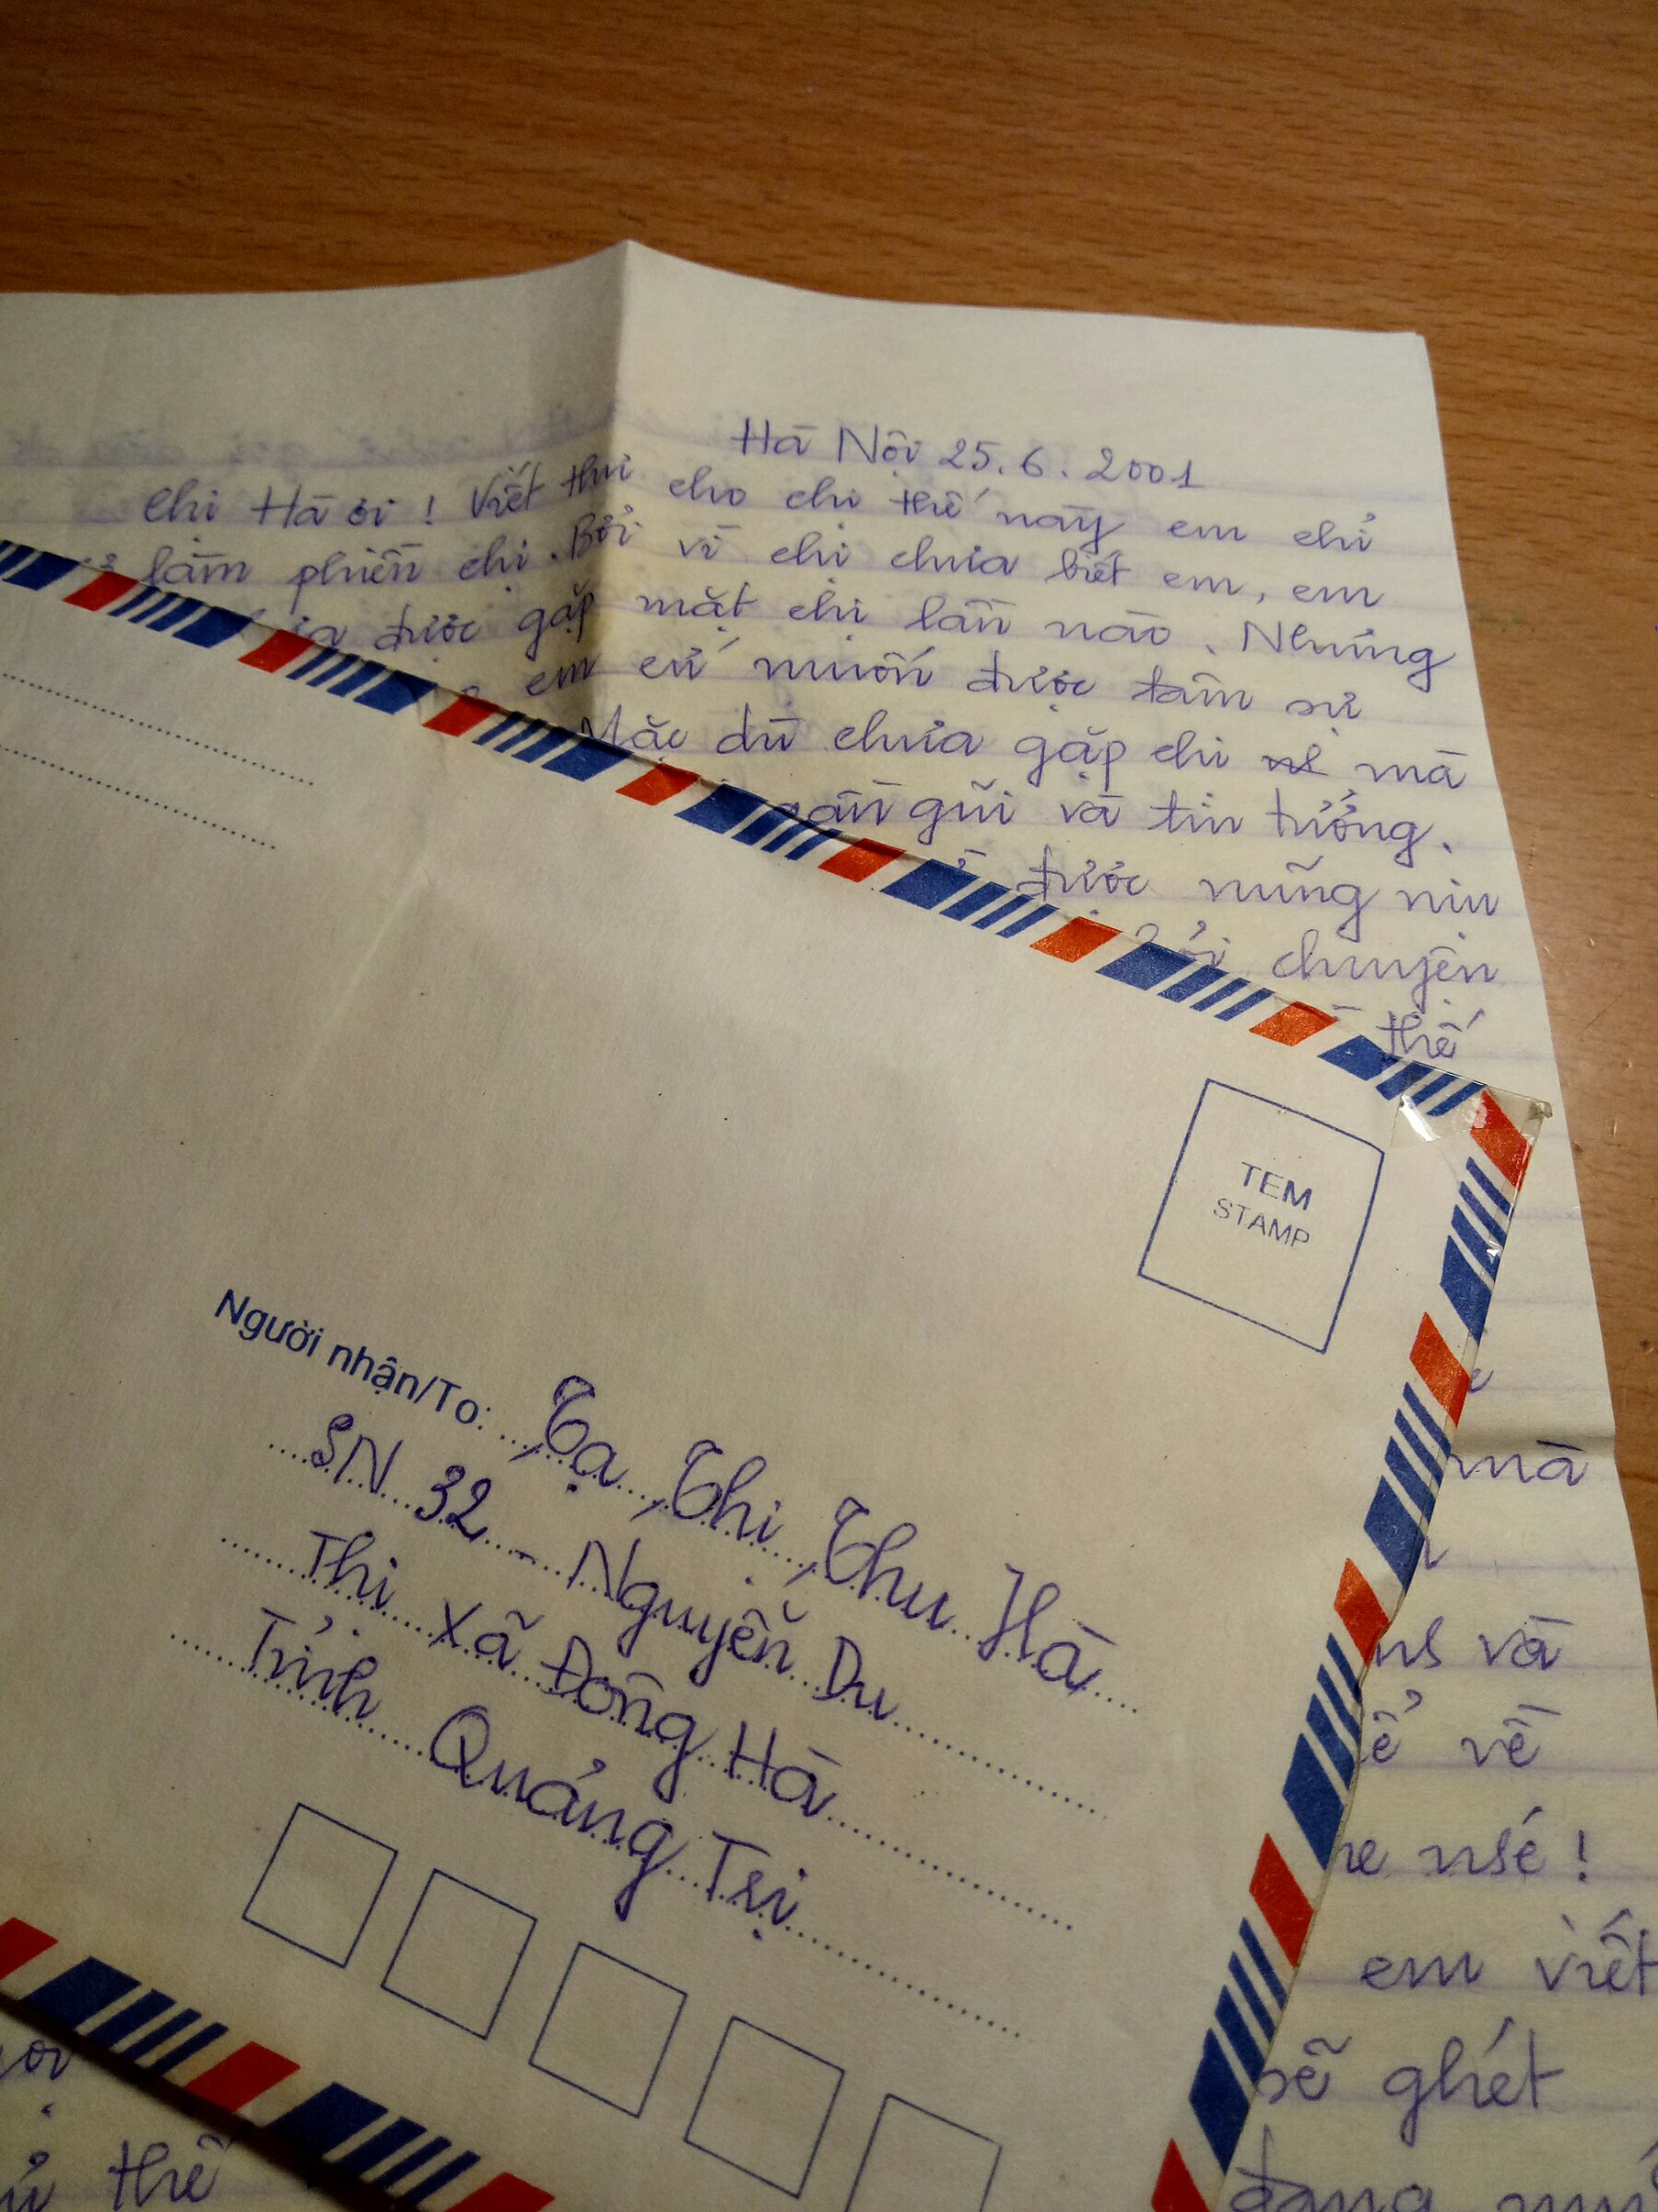 Hà Nội 25.6.2001
Chị Hà ơi! Viết thư cho chị thế này em chỉ
làm phiền chị. Bởi vì chị chưa biết em, em
được gặp mặt chị lần nào. Nhưng
em cứ muốn được tâm sự
Mặc dù chưa gặp chị mà
gần gũi và tin tưởng.
được nũng nịu
chuyện
thế
TEM
STAMP
mà
và
về
nhé!
em viết
sẽ ghét
Người nhận/To: Tạ Thị Thu Hà
SN 32 - Nguyễn Du
Thị Xã Đông Hà
Tỉnh Quảng Trị
thế